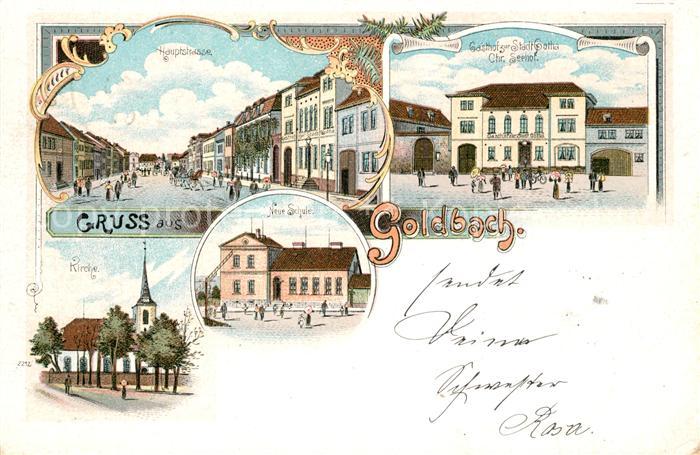 Hauptstrasse.
Gasthof zur Stadt Gotha
Chr. Seehof.
GRUSS aus
Goldbach.
Neue Schule.
Kirche.
2292
sendet
Deine
Schwester
Rosa.